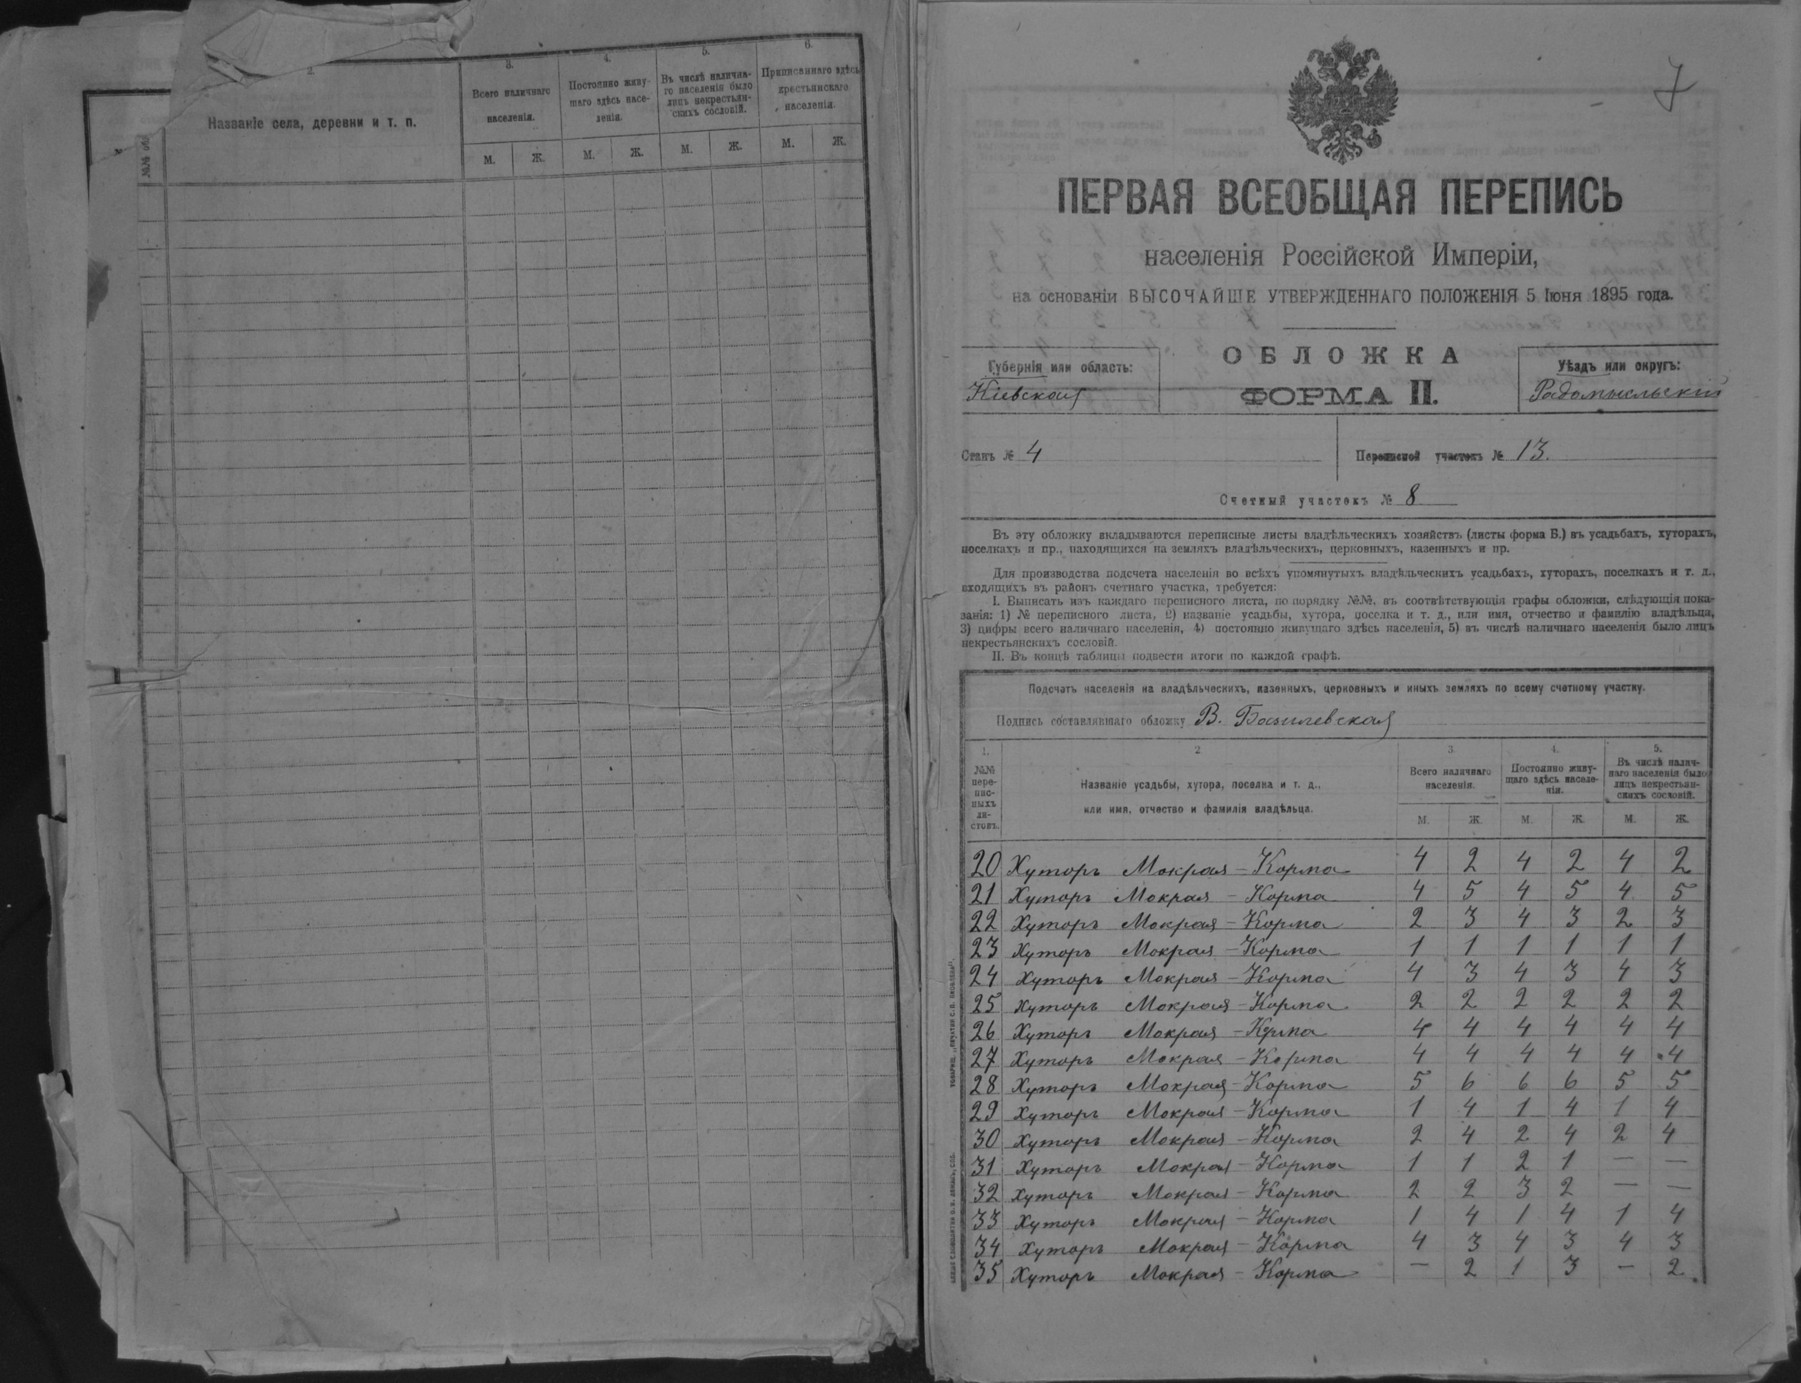 2.
Названіе села, деревни и т. п.
3.
Всего наличнаго
населенія.
4.
Постоянно живу-
щаго здѣсь насе-
ленія.
5.
Въ числѣ налична-
го населенія было
лицъ некрестьян-
скихъ сословій.
6.
Приписаннаго здѣсь
крестьянскаго
населенія.
М. Ж. М. Ж. М. Ж. М. Ж.
7
ПЕРВАЯ ВСЕОБЩАЯ ПЕРЕПИСЬ
населенія Россійской Имперіи,
на основаніи ВЫСОЧАЙШЕ УТВЕРЖДЕННАГО ПОЛОЖЕНІЯ 5 Іюня 1895 года.
ОБЛОЖКА
ФОРМА II.
Губернія или область:
Кіевская
Уѣздъ или округъ:
Радомысльскій
Станъ № 4
Переписной участокъ № 13.
Счетный участокъ № 8
Въ эту обложку вкладываются переписные листы владѣльческихъ хозяйствъ (листы форма Б.) въ усадьбахъ, хуторахъ,
поселкахъ и пр., находящихся на земляхъ владѣльческихъ, церковныхъ, казенныхъ и пр.
Для производства подсчета населенія во всѣхъ упомянутыхъ владѣльческихъ усадьбахъ, хуторахъ, поселкахъ и т. д.,
входящихъ въ районъ счетнаго участка, требуется:
I. Выписать изъ каждаго переписного листа, по порядку №№, въ соотвѣтствующія графы обложки, слѣдующія пока-
занія: 1) № переписного листа, 2) названіе усадьбы, хутора, поселка и т. д., или имя, отчество и фамилію владѣльца,
3) цифры всего наличнаго населенія, 4) постоянно живущаго здѣсь населенія, 5) въ числѣ наличнаго населенія было лицъ
некрестьянскихъ сословій.
II. Въ концѣ таблицы подвести итоги по каждой графѣ.
Подсчетъ населенія на владѣльческихъ, казенныхъ, церковныхъ и иныхъ земляхъ по всему счетному участку.
Подпись составлявшаго обложку В. Базилевская
1.
№№
пере-
пис-
ныхъ
ли-
стовъ.
2
Названіе усадьбы, хутора, поселка и т. д.,
или имя, отчество и фамилія владѣльца.
3.
Всего наличнаго
населенія.
4.
Постоянно живу-
щаго здѣсь населе-
нія.
5.
Въ числѣ налич-
наго населенія было
лицъ некрестьян-
скихъ сословій.
М. Ж. М. Ж. М. Ж.
20 Хуторъ Мокрая - Корма 4 2 4 2 4 2
21 Хуторъ Мокрая - Корма 4 5 4 5 4 5
22 Хуторъ Мокрая - Корма 2 3 4 3 2 3
23 Хуторъ Мокрая - Корма 1 1 1 1 1 1
24 Хуторъ Мокрая - Корма 4 3 4 3 4 3
25 Хуторъ Мокрая - Корма 2 2 2 2 2 2
26 Хуторъ Мокрая - Корма 4 4 4 4 4 4
27 Хуторъ Мокрая - Корма 4 4 4 4 4 4
28 Хуторъ Мокрая - Корма 5 6 6 6 5 5
29 Хуторъ Мокрая - Корма 1 4 1 4 1 4
30 Хуторъ Мокрая - Корма 2 4 2 4 2 4
31 Хуторъ Мокрая - Корма 1 1 2 1 — —
32 Хуторъ Мокрая - Корма 2 2 3 2 — —
33 Хуторъ Мокрая - Корма 1 4 1 4 1 4
34 Хуторъ Мокрая - Корма 4 3 4 3 4 3
35 Хуторъ Мокрая - Корма — 2 1 3 — 2